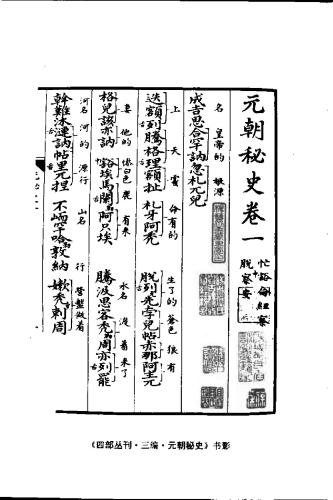 元朝秘史卷一
忙豁侖紐察
脫察安
名 皇帝的 根源
成吉思合罕訥忽札兀兒
上 天 處 命有的 生了的 蒼色 狼 有
迭額列騰格理額扯 札牙阿禿 脫列先孛兒帖赤那阿主兀
妻 他的 慘白色 鹿 有來 水名 渡着 來了
格兒該亦訥 豁埃馬闌勒阿只埃 騰汲思客禿勒周亦列罷
河名 河的 源行 山名 行 營盤做着
斡難沐漣訥帖里兀捏 不峏罕哈勒敦納 嫩禿剌周
《四部丛刊·三编·元朝秘史》书影